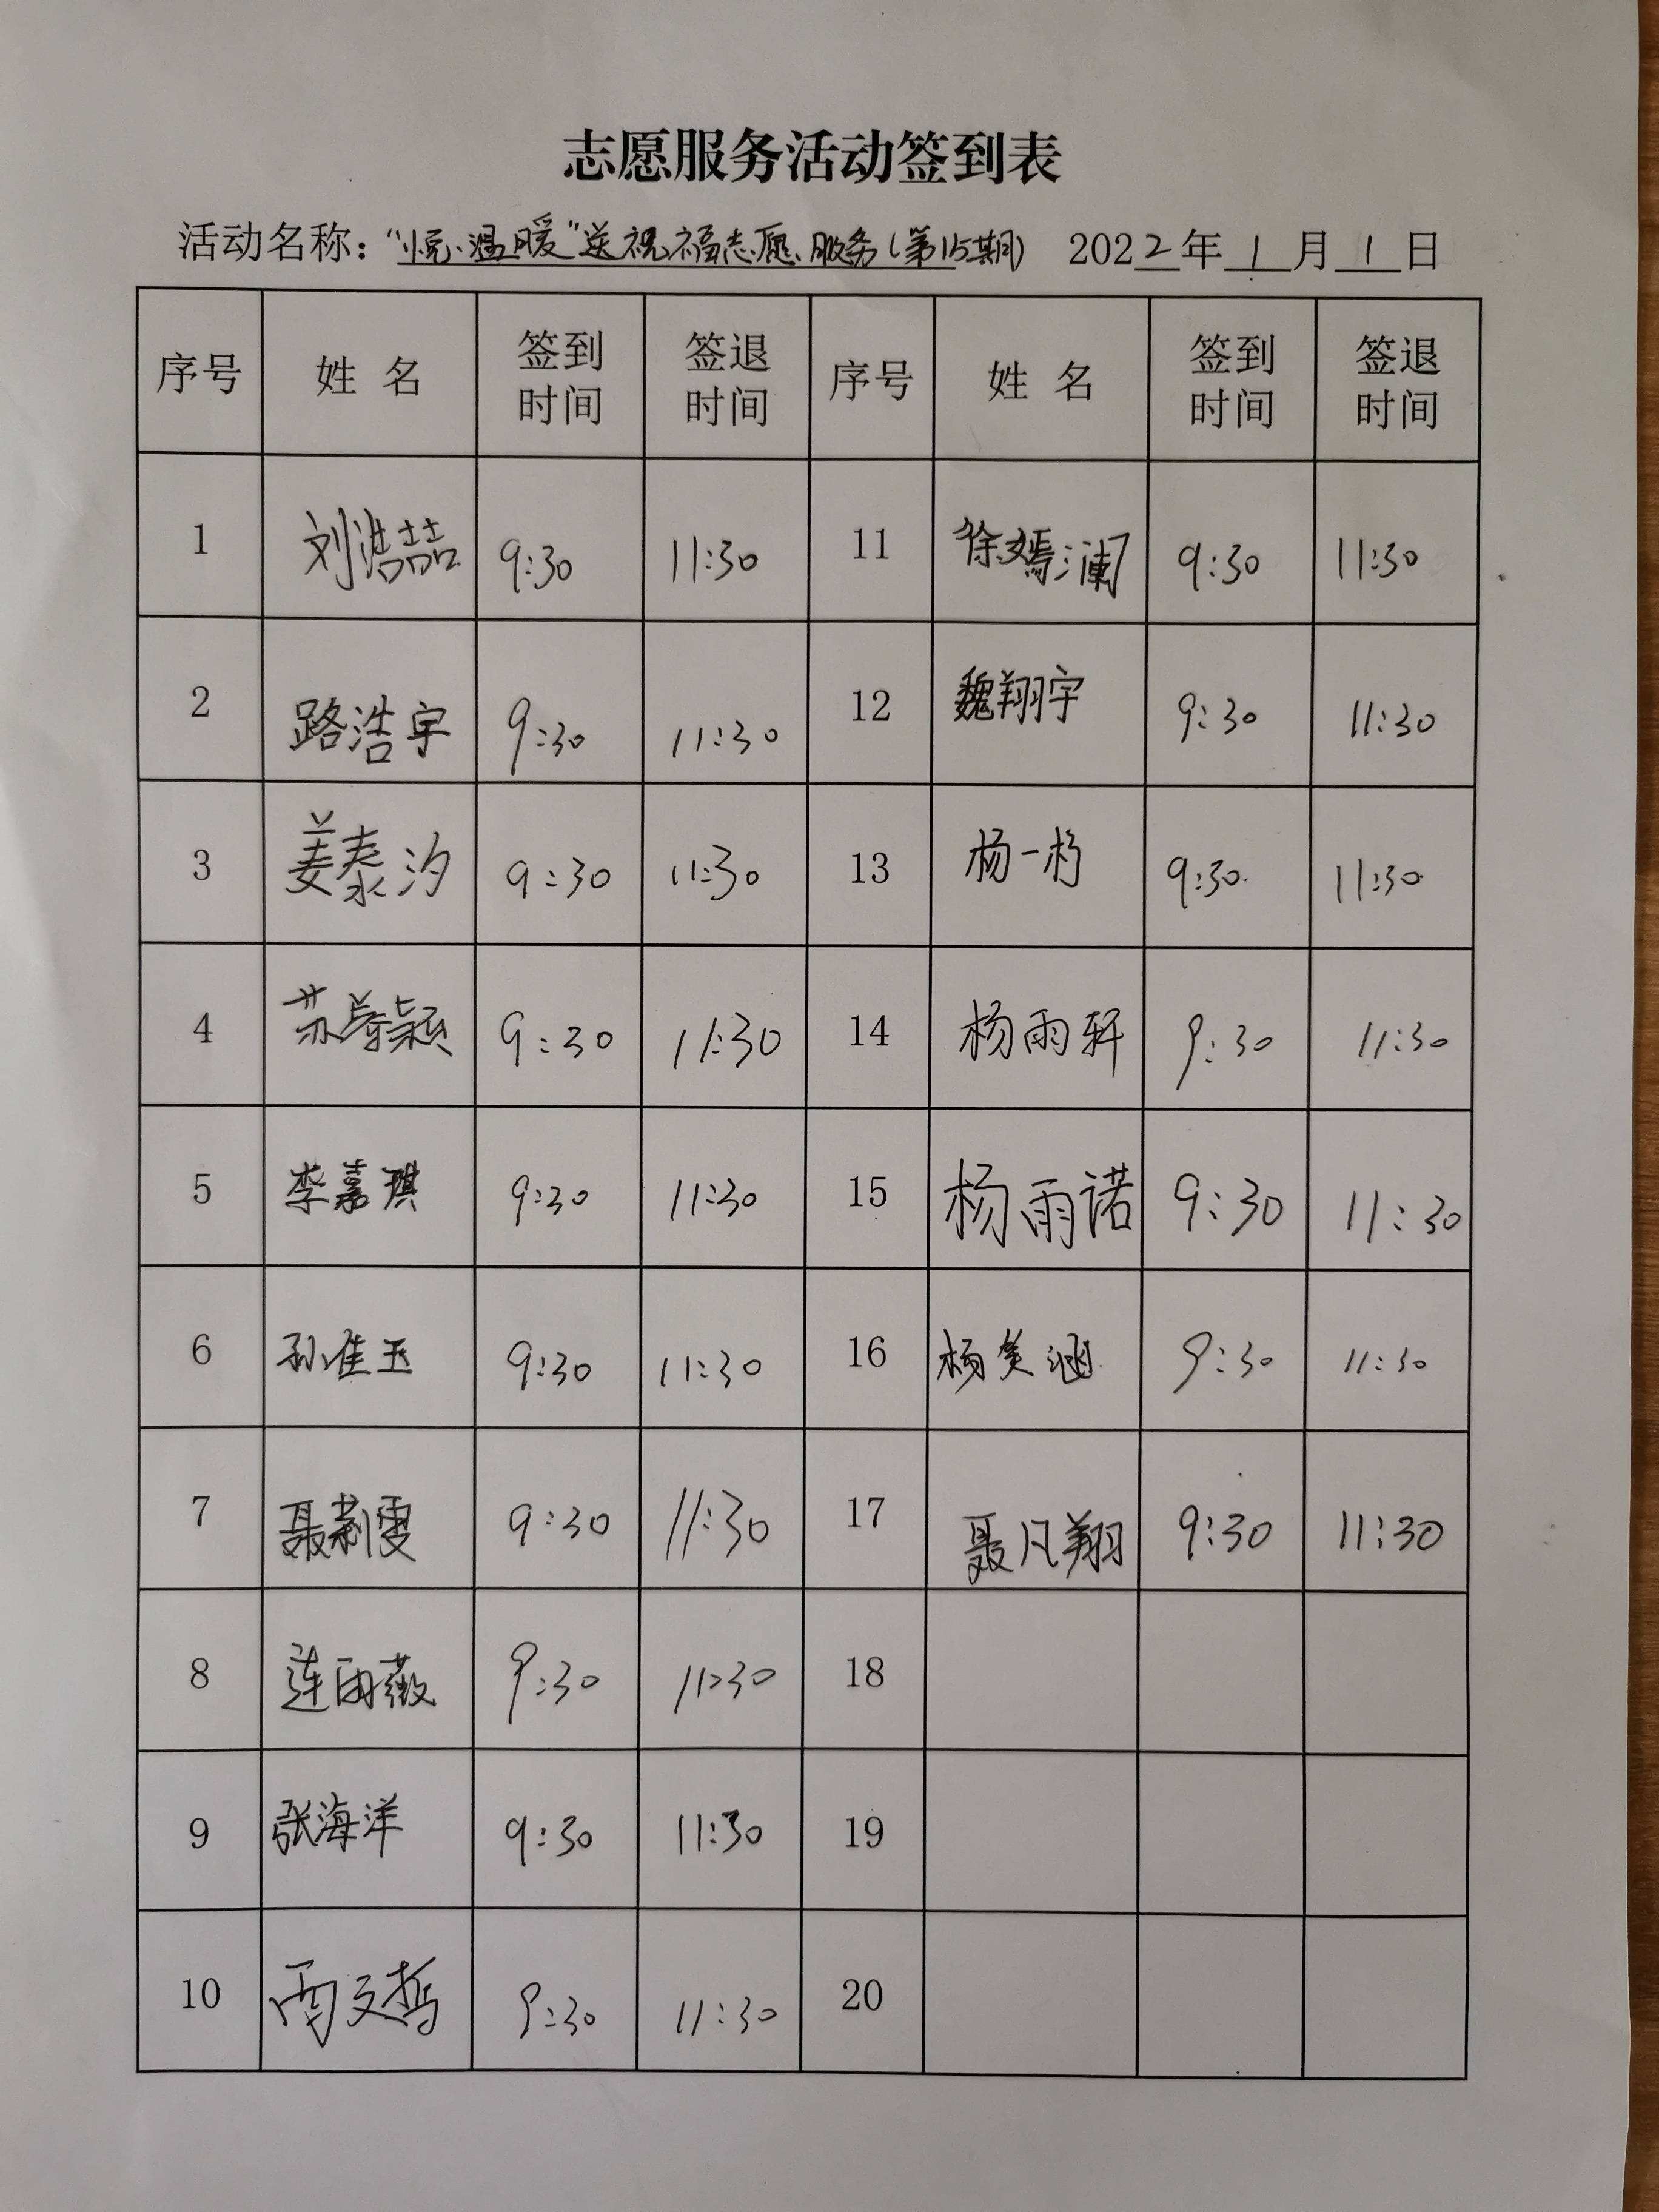 志愿服务活动签到表
活动名称：“悦·温暖”送祝福志愿服务(第15期) 2022年1月1日
序号 姓名 签到时间 签退时间 序号 姓名 签到时间 签退时间
1 刘浩喆 9:30 11:30 11 徐嫣澜 9:30 11:30
2 路浩宇 9:30 11:30 12 魏翔宇 9:30 11:30
3 姜泰汐 9:30 11:30 13 杨一杉 9:30 11:30
4 苏 颖 9:30 11:30 14 杨雨轩 9:30 11:30
5 李嘉琪 9:30 11:30 15 杨雨诺 9:30 11:30
6 孙佳玉 9:30 11:30 16 杨笑涵 9:30 11:30
7 聂 雯 9:30 11:30 17 聂凡翔 9:30 11:30
8 连雨薇 9:30 11:30 18
9 张海洋 9:30 11:30 19
10 文哲 9:30 11:30 20